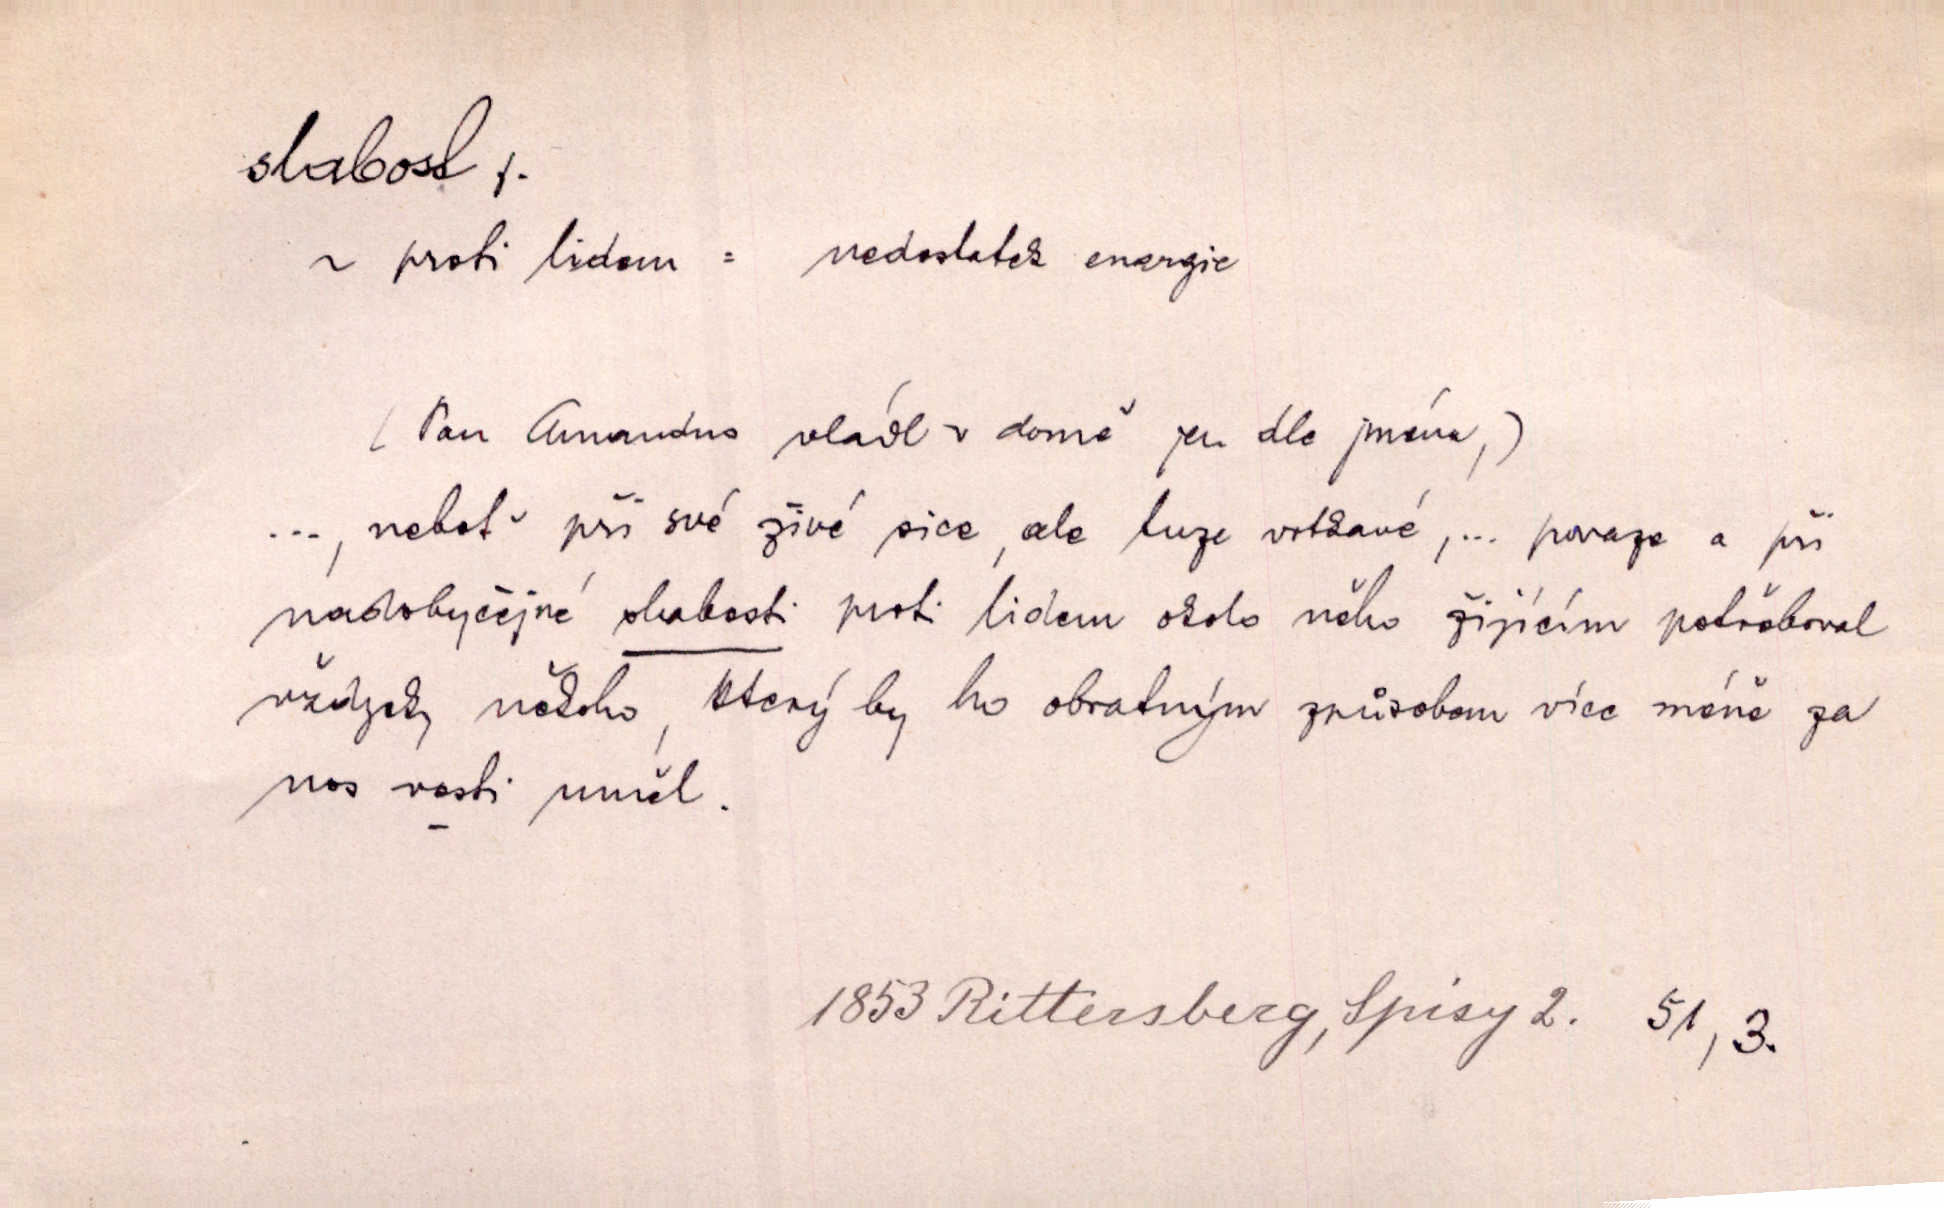 slabost f.
~ proti lidem = nedostatek energie
(Pan Amandus vládl v domě jen dle jména,)
..., neboť při své živé sice, ale tuze vrtkavé,... povaze a při
nadobyčejné slabosti proti lidem okolo něho žijícím potřeboval
vždycky někoho, který by ho obratným způsobem více méně za
nos vesti uměl.
1853 Rittersberg, Spisy 2. 51, 3.